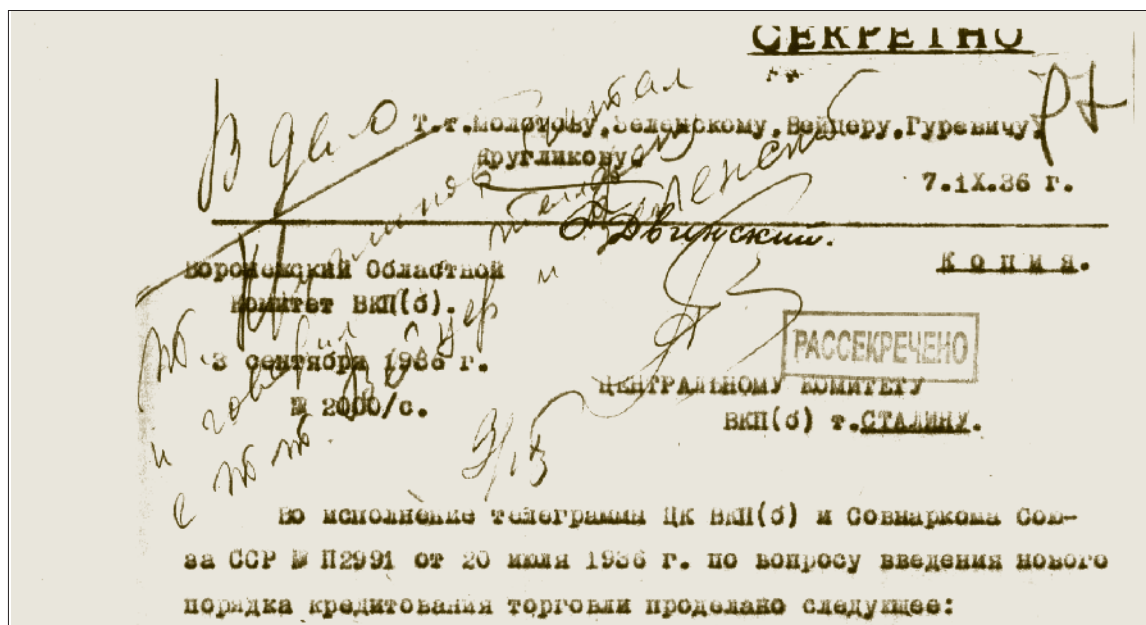 СЕКРЕТНО
Т.т.Молотову,Зеленскому,Вейцеру,Гуревичу,
Кругликову.
7.IX.36 г.
В дело
Двинский.
Воронежский Областной
Комитет ВКП(б).
Копия.
3 сентября 1936 г.
№ 2000/с.
РАССЕКРЕЧЕНО
ЦЕНТРАЛЬНОМУ КОМИТЕТУ
ВКП(б) т.СТАЛИНУ.
и говорил
Во исполнение телеграммы ЦК ВКП(б) и Совнаркома Сою-
за ССР № П2991 от 20 июля 1936 г. по вопросу введения нового
порядка кредитования торговли проделано следующее: